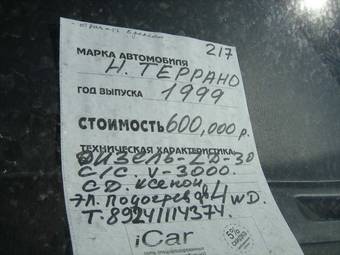 217
МАРКА АВТОМОБИЛЯ
Н. ТЕРРАНО
ГОД ВЫПУСКА 1999
СТОИМОСТЬ 600,000 р.
ТЕХНИЧЕСКАЯ ХАРАКТЕРИСТИКА:
ДИЗЕЛЬ-LD-30
С/С. V-3000.
CD. КСЕНОН
ЭЛ. Подогрев дв 4WD.
Т. 89241114374.
iCar
5%